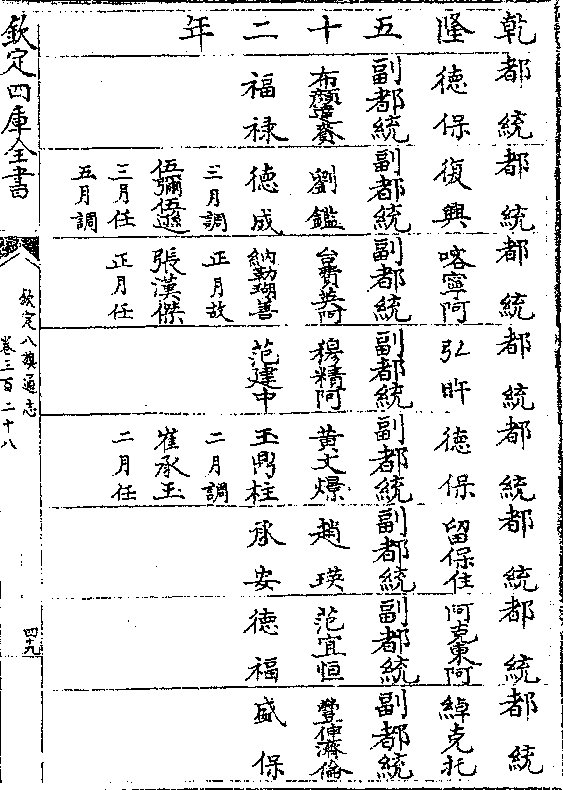 乾隆五十二年
都統
德保
副都統
布顏達賚
福祿
都統
復興
副都統
劉鑑
德成
三月調
伍彌伍遜
三月任
五月調
都統
喀寧阿
副都統
台費英阿
納勤瑚善
正月故
張漢傑
正月任
都統
弘旿
副都統
穆精阿
范建中
都統
德保
副都統
黃文
玉鼎柱
二月調
崔承玉
二月任
都統
留保住
副都統
趙瑛
承安
都統
阿克東阿
副都統
范宜恒
德福
都統
綽克托
副都統
豐伸濟倫
盛保
欽定四庫全書
欽定八旗通志
卷三百二十八
四十九